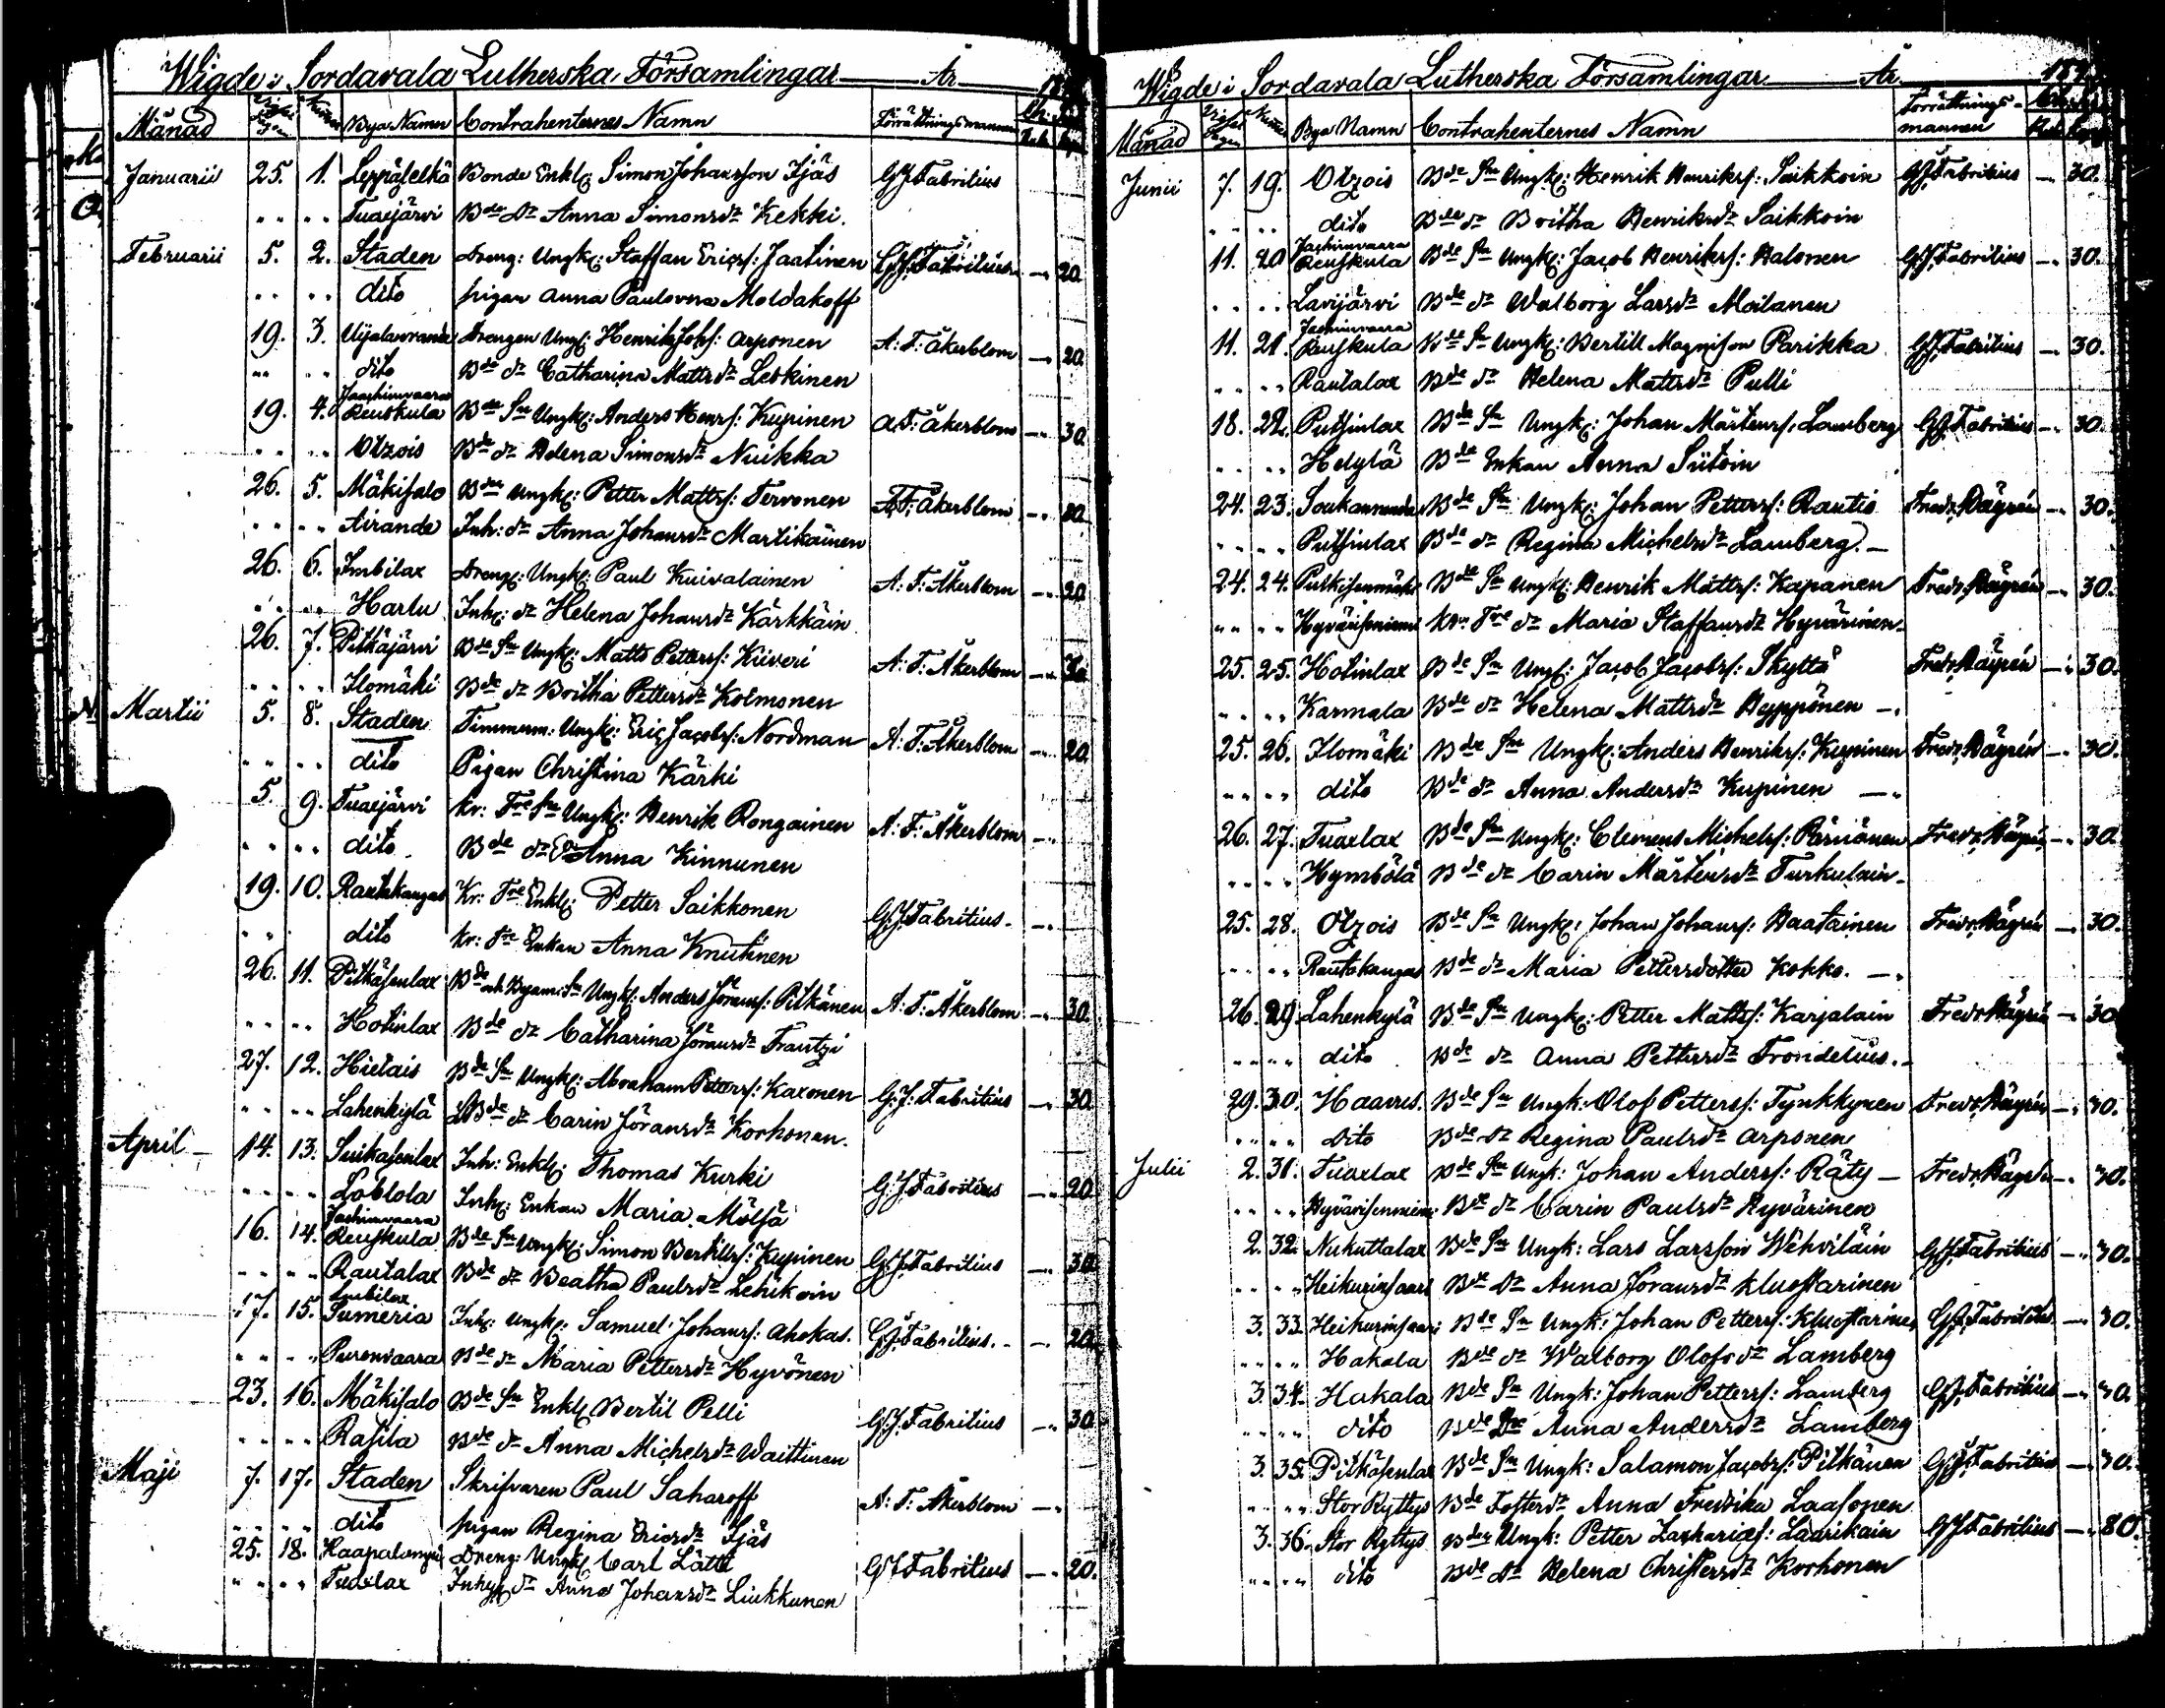 Wigde i Sordavala Lutherska Församlingar År
Månad Bya Namn Contrahenternes Namn Förrättningsmannen
Januarii 25. 1. Leppäselkä Bonde Enkl: Simon Johansson Ijäs G J Fabritius
Tuaxjärvi Bde dr Anna Simonsdr Kekki.
Februarii 5. 2. Staden Dreng: Ungk: Staffan Ericss: Jaatinen G J Fabritius 20.
dito pigan Anna Paulovna Moldakoff
19. 3. Drengen Ungk: Henrik Arponen A: F: Åkerblom 20.
dito Bde dr Catharina Mattsdr Leskinen
19. 4. Jaschinvaara Reuskula Bde Sn Ungk: Anders Henrs: Kupinen A. F: Åkerblom 30.
Otzois Bde dr Helena Simonsdr Nuikka
26. 5. Mäkisalo Bden Ungk: Petter Mattss: Tervonen A: F: Åkerblom
Airanda Inh: dr Anna Johansdr Martikainen
26. 6. Imbilax Dreng: Ungk: Paul Kuivalainen A: F: Åkerblom 20.
Harlu Inh: dr Helena Johansdr Kärkkäin
26. 7. Pitkäjärvi Bde Sn Ungk: Matts Petterss: Kiiveri A: F: Åkerblom
Ilomäki Bde dr Britha Pettersdr Kolmonen
Martii 5. 8. Staden Timmerm: Ungk: Eric Jacobs: Nordman A: F: Åkerblom 20.
dito Pigan Christina Kärki
5. 9. Tuaxjärvi Kr: Tre Sn Ungk: Henrik Rongainen A: F: Åkerblom
dito Bde dr Anna Kinnunen
19. 10. Rautakangas Kr: Tre Enkl: Petter Saikkonen G. J. Fabritius
dito Kr: Tre Enkan Anna Knutinen
26. 11. Pitkäsenlax Bde Sn Ungk: Anders Jöranss: Pitkänen A: F: Åkerblom 30.
Hotinlax Bde dr Catharina Jöransdr Frantzi
27. 12. Hietais Bde Sn Ungk: Abraham Petterss: Kaxonen G: J: Fabritius 30.
Lahenkylä Bde dr Carin Jöransdr Korhonen.
April 14. 13. Suikasenlax Inh: Enkl: Thomas Kurki G: J: Fabritius 20.
Löblola Inh: Enkan Maria Mölsä
16. 14. Jaschinvaara Reuskula Bde Sn Ungk: Simon Bertills: Kupinen G: J: Fabritius 30.
Rautalax Bde dr Beatha Paulsdr Lehikoin
17. 15. Imbilax Sumeria Inh: Ungk: Samuel Johanss: Ahokas. G: J: Fabritius 20.
Puronvaara Bde dr Maria Pettersdr Hyvönen
23. 16. Mäkisalo Bde Sn Enkl: Bertil Pelli G: J. Fabritius 30.
Rasila Bde dr Anna Michelsdr Waittinen
Maji 7. 17. Staden Skrifvaren Paul Saharoff A: F: Åkerblom
dito pigan Regina Ericsdr Ijäs
25. 18. Dreng: Ungk: Carl Lätti G J Fabritius 20.
Tuaxlax dr Anna Johansdr Liukkunen
Wigde i Sordavala Lutherska Församlingar År
Månad Bya Namn Contrahenternes Namn Förrättnings-mannen
Junii 7. 19. Otzois Bde Sn Ungk: Henrik Henrikss: Saikkoin G J Fabritius 30.
dito Bde dr Britha Henriksdr Saikkoin
11. 20. Jaschinvaara Reuskula Bde Sn Ungk: Jacob Henrikss: Halonen G J Fabritius 30.
Lavijärvi Bde dr Walborg Larsdr Moilanen
11. 21. Jaschinvaara Reuskula Bde Sn Ungk: Bertill Magnison Parikka G J Fabritius 30.
Rautalax Bde dr Helena Mattsdr Pulli
18. 22. Putsinlax Bde Sn Ungk: Johan Mårtenss: Lamberg G J Fabritius 30.
Helylä Bde Enkan Anna Siitoin
24. 23. Soukanranda Bde Sn Ungk: Johan Petterss: Rautio Fredr: Bägren 30.
Putsinlax Bde dr Regina Michelsdr Lamberg.
24. 24. Bde Sn Ungk: Henrik Mattss: Kapanen Fredr: Bägren 30.
Kr: Tre dr Maria Staffansdr Hyvärinen
25. 25. Hotinlax Bde Sn Ungk: Jacob Jacobs: Skyttä Fredr: Bägren 30.
Karmala Bde dr Helena Mattsdr Heppönen
25. 26. Ilomäki Bde Sn Ungk: Anders Henrikss: Kupinen Fredr: Bägren 30.
dito Bde dr Anna Andersdr Kupinen
26. 27. Tuaxlax Bde Sn Ungk: Clemens Michelss: Pärnänen Fredr: Bägren 30.
Hymbölä Bde dr Carin Mårtensdr Turkulain
25. 28. Otzois Bde Sn Ungk: Johan Johanss: Haatainen Fredr: Bägren 30.
Rautakangas Bde dr Maria Pettersdotter Kokko.
26. 29. Lahenkylä Bde Sn Ungk: Petter Mattss: Karjalain Fredr Bägren 30
dito Bde dr Anna Pettersdr Frondelius.
29. 30. Haavus. Bde Sn Ungk: Olof Petterss: Tynkkynen Fredr Bägren 30.
dito Bde dr Regina Paulsdr Arponen
Julii 2. 31. Tuaxlax Bde Sn Ungk: Johan Anderss: Räty Fredr: Bägren 30.
Hyvärisenniemi Bde dr Carin Paulsdr Hyvärinen
2. 32. Nukuttalax Bde Sn Ungk: Lars Larsson Wehviläin G J Fabritius 30.
Heikurinsaari Bde dr Anna Jöransdr Kluostarinen
3. 33. Heikurinsaari Bde Sn Ungk: Johan Petterss: Kluostarinen G J Fabritius 30.
Hakala Bde dr Walborg Olofsdr Lamberg
3. 34. Hakala Bde Sn Ungk: Johan Petterss: Lamberg G J Fabritius 30.
dito Bde Anna Andersdr Lamberg
3. 35. Pitkäsenlax Bde Sn Ungk: Salamon Jacobs: Pitkänen G J Fabritius 30.
Stor Ryttys Bde Fosterdr Anna Fredrika Laasonen
3. 36. Stor Ryttys Bden Ungk: Petter Zacharias: Laurikain G J Fabritius 80.
dito Bde dr Helena Christersdr Korhonen